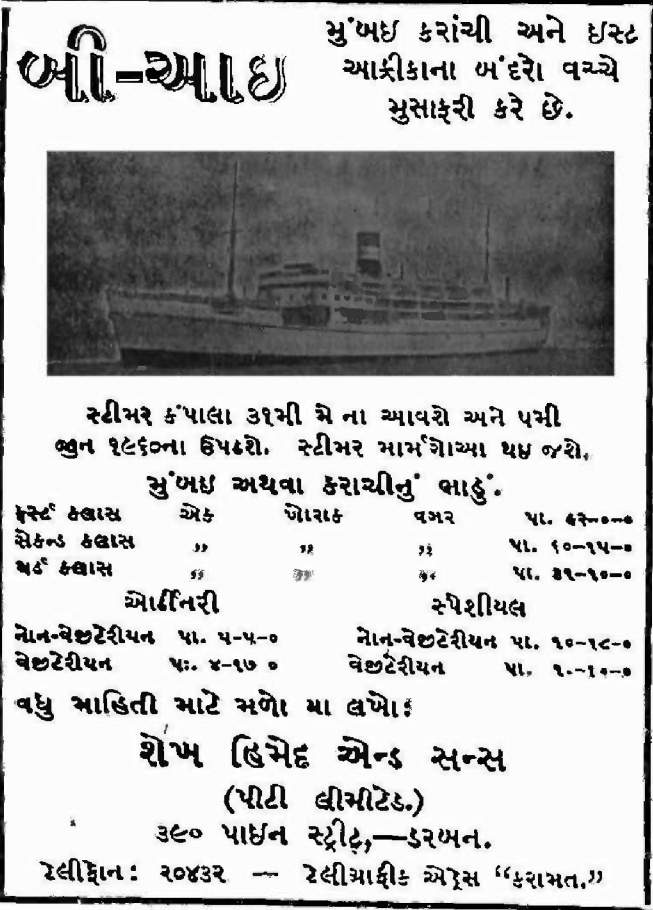 બી-આઇ
મુંબઇ કરાંચી અને ઇસ્ટ
આફ્રીકાના બંદરો વચ્ચે
મુસાફરી કરે છે.
સ્ટીમર કંપાલા ૩૧મી મે ના આવશે અને ૫મી
જીુન ૧૯૬૦ના ઉપડશે. સ્ટીમર મામ્ગોઆ થઇ જશે.
મુંબઇ અથવા કરાચીનું ભાડું.
ફર્સ્ટ કલાસ એક ખોરાક વગર પા.
સેકન્ડ કલાસ ,, ,, ,, પા. ૬૦-૧૫-૦
થર્ડ કલાસ ,, ,, ,, પા.
ઓર્ડીનરી સ્પેશીયલ
નોન-વેજીટેરીયન પા. ૫-૫-૦ નોન-વેજીટેરીયન પા. ૧૦-૧૮-૦
વેજીટેરીયન પા. ૪-૧૭ ૦ વેજીટેરીયન પા.
વધુ માહિતી માટે મળો યા લખો:
શેખ હિમેદ એન્ડ સન્સ
(પીટી લીમીટેડ.)
૩૯૦ પાઇન સ્ટ્રીટ,—ડરબન.
ટેલીફોન: ૨૦૪૩૨ — ટેલીગ્રાફીક એડ્રેસ “કરામત.”